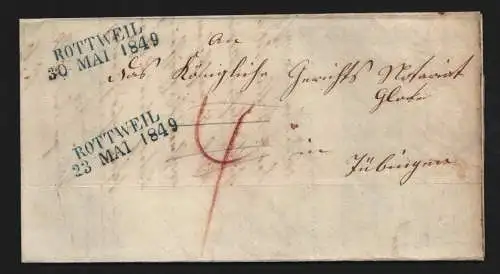 ROTTWEIL
30 MAI 1849
An
das Königliche Gerichts Notariat
ROTTWEIL
23 MAI 1849
4
in
Tübingen